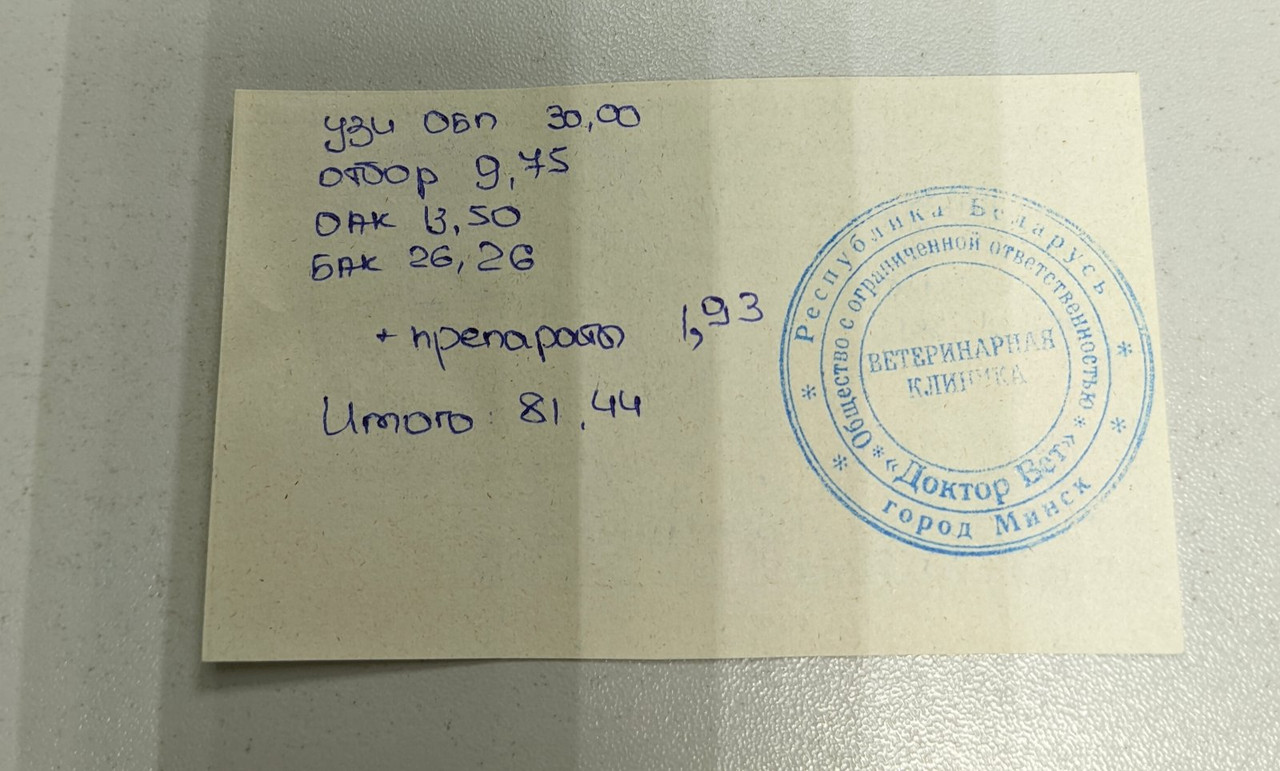 УЗИ ОБП 30,00
отбор 9,75
ОАК 13,50
БАК 26,26
+ препараты 1,93
Итого 81,44
Республика Беларусь
Общество с ограниченной ответственностью
ВЕТЕРИНАРНАЯ
КЛИНИКА
«Доктор Вет»
город Минск